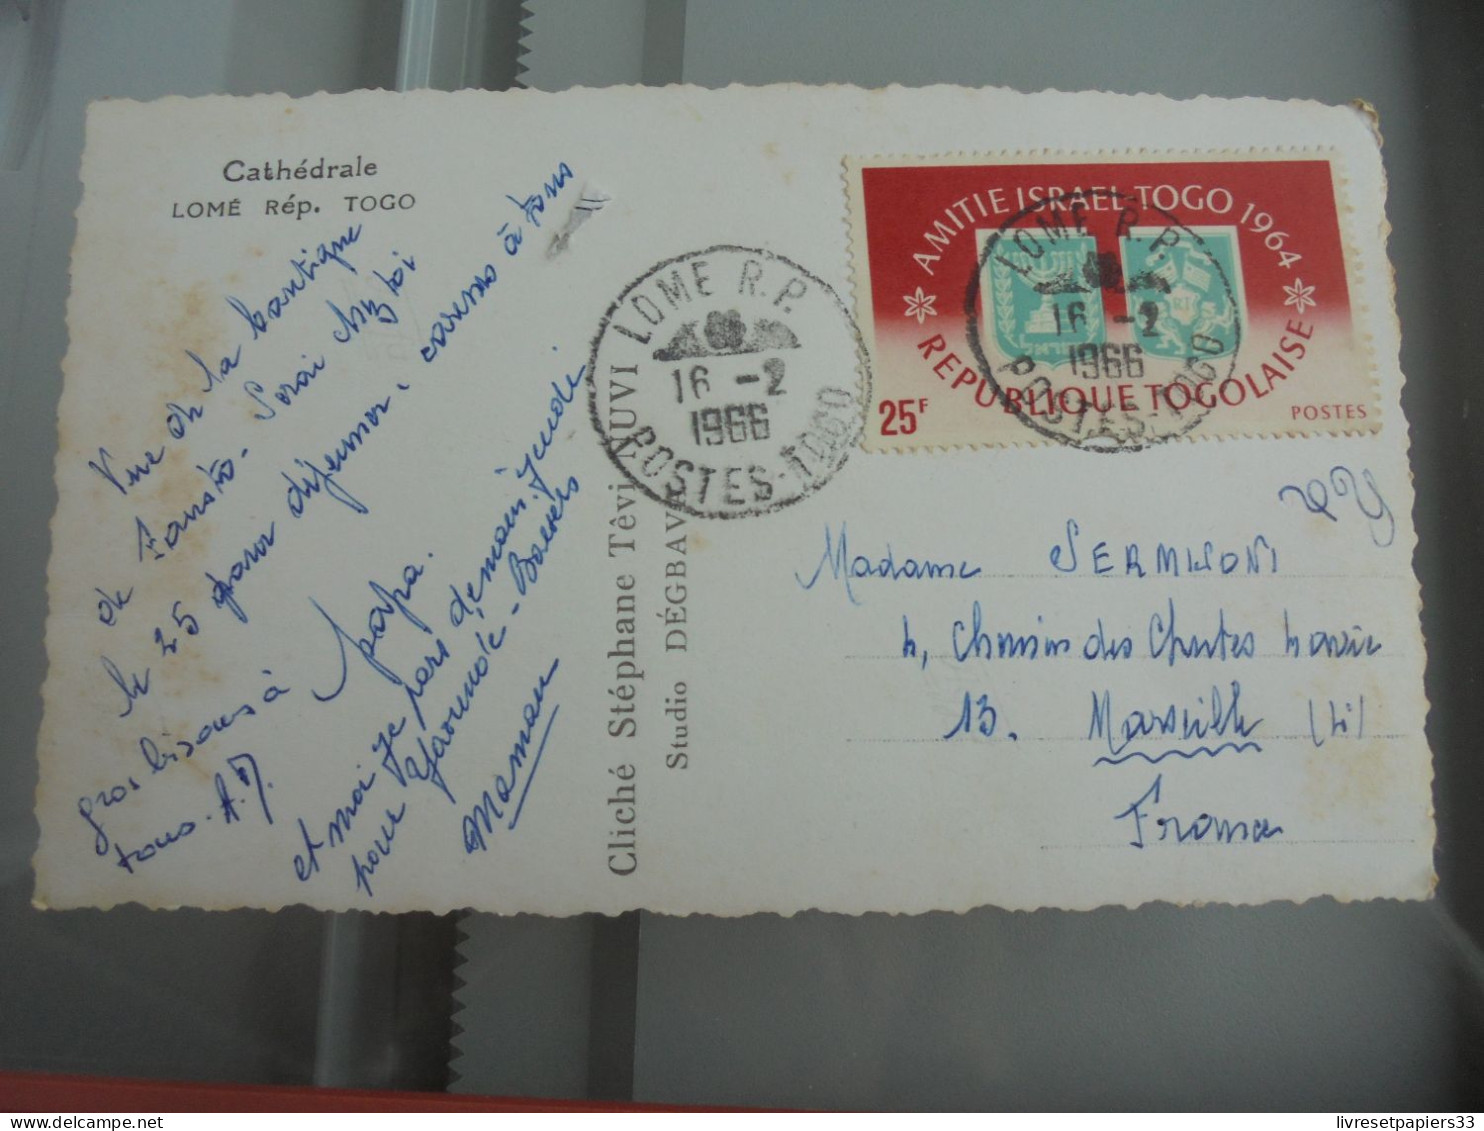 Cathédrale
LOMÉ Rép. TOGO
Vue de la boutique
de Fausto. Serai chez toi
le 25 pour déjeuner. caresses à tous
papa.
gros bisous à
tous. A.D.
et moi je pars demain jeudi
pour Yaoundé - Baisers
Maman
Cliché Stéphane Têvi YUVI
Studio DÉGBAVA
LOME R.P.
16 -2
1966
POSTES-TOGO
AMITIE ISRAEL-TOGO 1964
REPUBLIQUE TOGOLAISE
25F
POSTES
LOME R.P.
16 -2
1966
POSTES-TOGO
Madame SERMISONI
4, Chemin des Chutes Lavie
13. Marseille (4)
France
livresetpapiers33